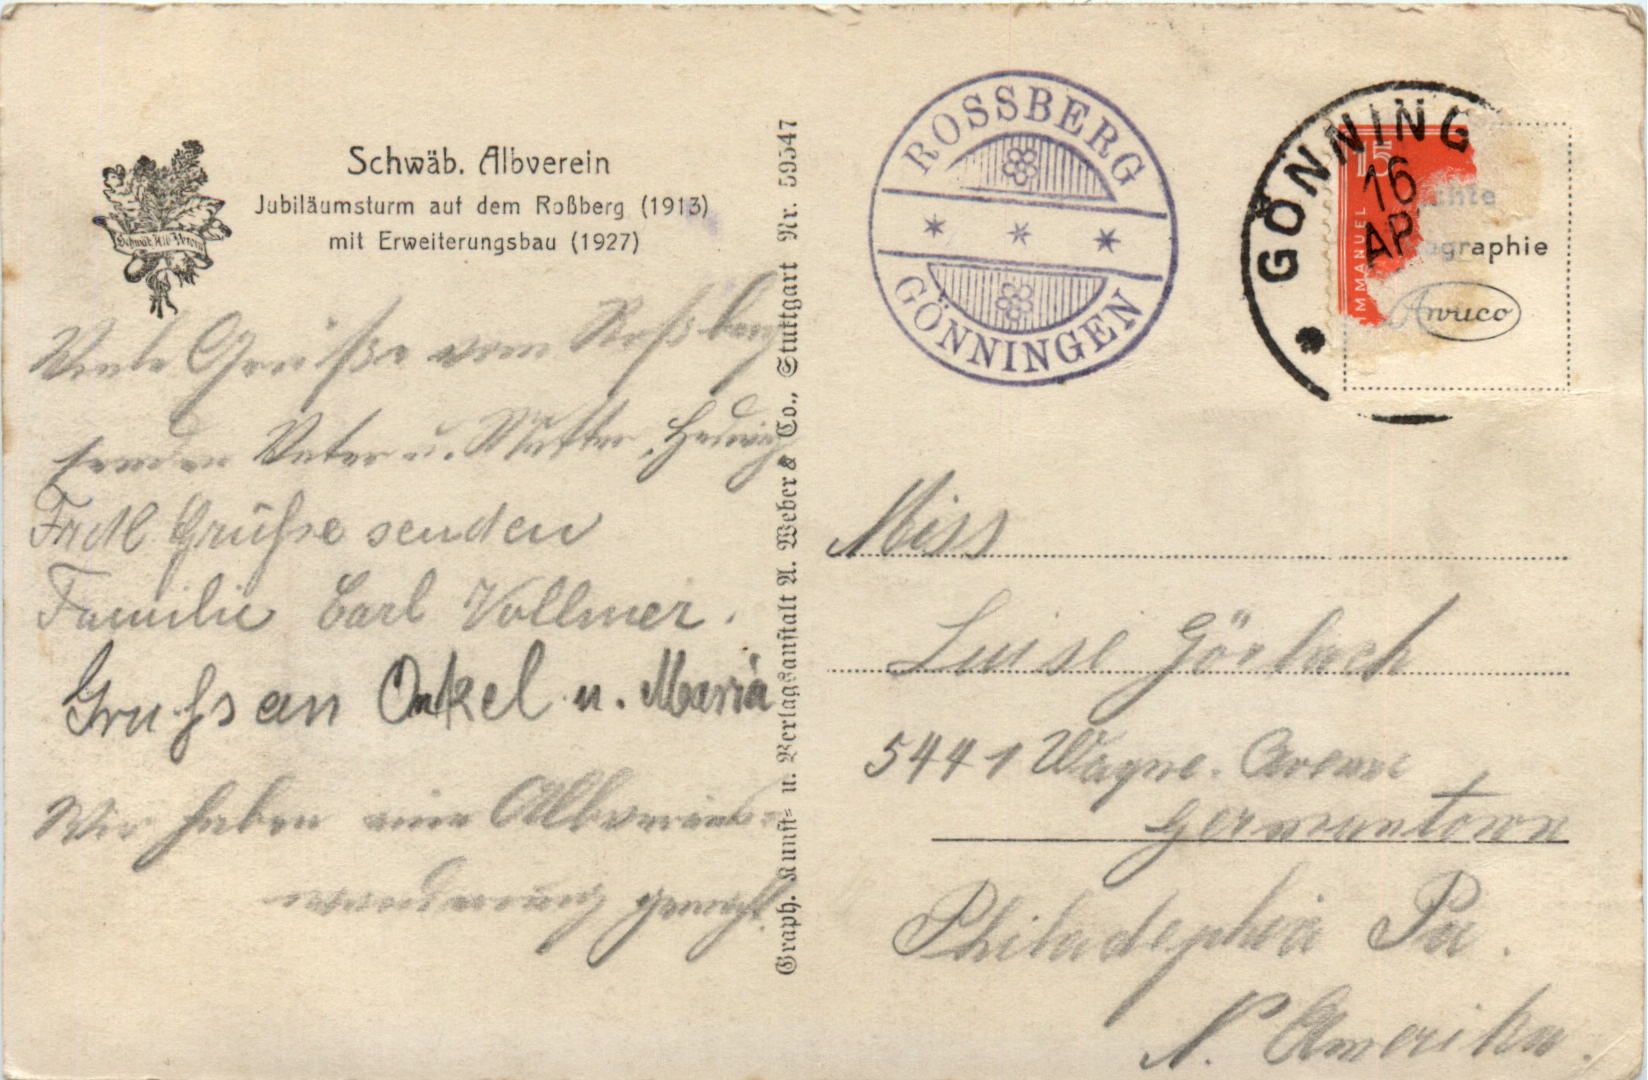 Schwäb. Albverein
Jubiläumsturm auf dem Roßberg (1913)
mit Erweiterungsbau (1927)
Schwäb. Alb Verein
Viele Grüße vom Roßberg
senden Vater u. Mutter, Hedwig
Frdl Grüße senden
Familie Carl Vollmer.
Gruß an Onkel u. Maria
Wir haben eine Albvereins-
wanderung gemacht.
Graph. Kunst- u. Verlagsanstalt A. Weber & Co., Stuttgart Nr. 59547
ROSSBERG
GÖNNINGEN
GÖNNING
16
AP
15
MMANUEL
chte
graphie
Anvico
Miss
Luise Görlach
5441 Wayne. Avenue
Germantown
Philadephia Pa.
N. Amerika.